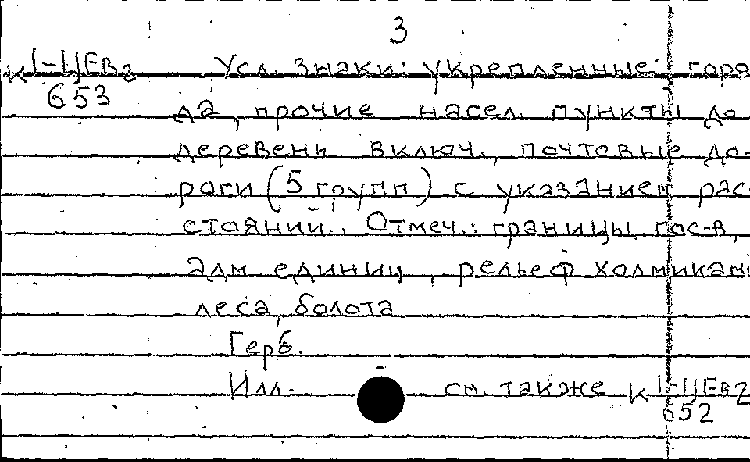 3
К 1-ЦЕв2 Усл. знаки: укрепленные горо-
653 да, прочие насел. пункты до
деревень включ., почтовые до-
роги (5 групп) с указанием рас-
стояний. Отмеч.: границы гос-в,
адм. единиц, рельеф холмиками
леса, болота
Герб.
Илл. см. также К 1-ЦЕв2
652